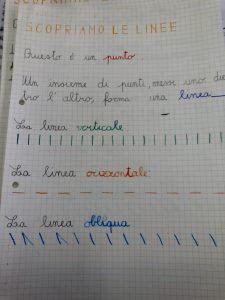 SCOPRIAMO LE LINEE
Questo è un punto.
Un insieme di punti, messi uno die
tro l'altro, forma una linea
La linea verticale
La linea orizzontale:
La linea obliqua